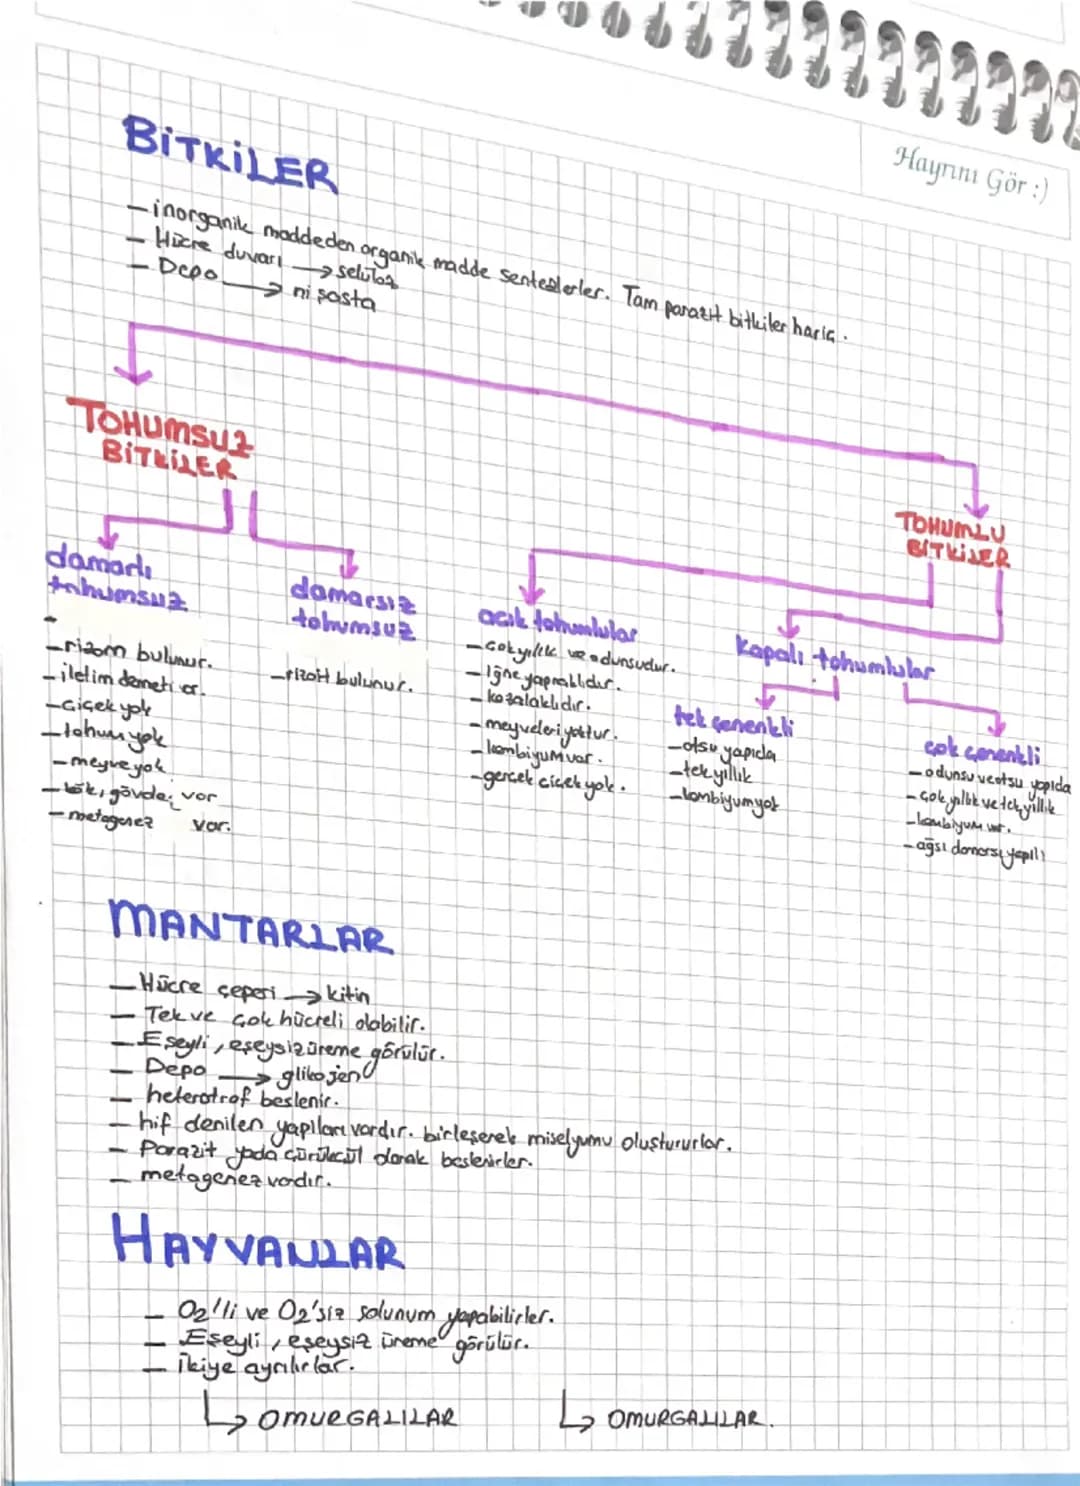 Hayrını Gör :)
BİTKİLER
- inorganik maddeden organik madde sentezlerler. Tam parazit bitkiler hariç.
- Hücre duvarı → selüloz
- Depo → nişasta
TOHUMSUZ
BİTKİLER
TOHUMLU
BİTKİLER
damarlı
tohumsuz
-
- rizom bulunur.
- iletim demeti var.
- Çiçek yok
- tohum yok
- meyve yok
- kök, gövde, var
- metagenez var.
damarsız
tohumsuz
- rizoit bulunur.
açık tohumlular
- Çok yıllık ve odunsudur.
- İğne yapraklıdır.
- kozalaklıdır.
- meyveleri yoktur.
- kambiyum var.
- gerçek çiçek yok.
kapalı tohumlular
tek çenenkli
- otsu yapıda
- tek yıllık
- kambiyum yok
çok çenenkli
- odunsu ve otsu yapıda
- Çok yıllık ve tek yıllık
- kambiyum var.
- ağsı damarsı yapılı
MANTARLAR
- Hücre çeperi → kitin
- Tek ve çok hücreli olabilir.
- Eşeyli, eşeysiz üreme görülür.
- Depo → glikojen
- heterotrof beslenir.
- hif denilen yapıları vardır. birleşerek miselyumu oluştururlar.
- Parazit yada çürükçül olarak beslenirler.
- metagenez vardır.
HAYVANLAR
- O2'li ve O2'siz solunum yapabilirler.
- Eşeyli, eşeysiz üreme görülür.
- İkiye ayrılırlar.
↳ OMURGALILAR ↳ OMURGALILAR.